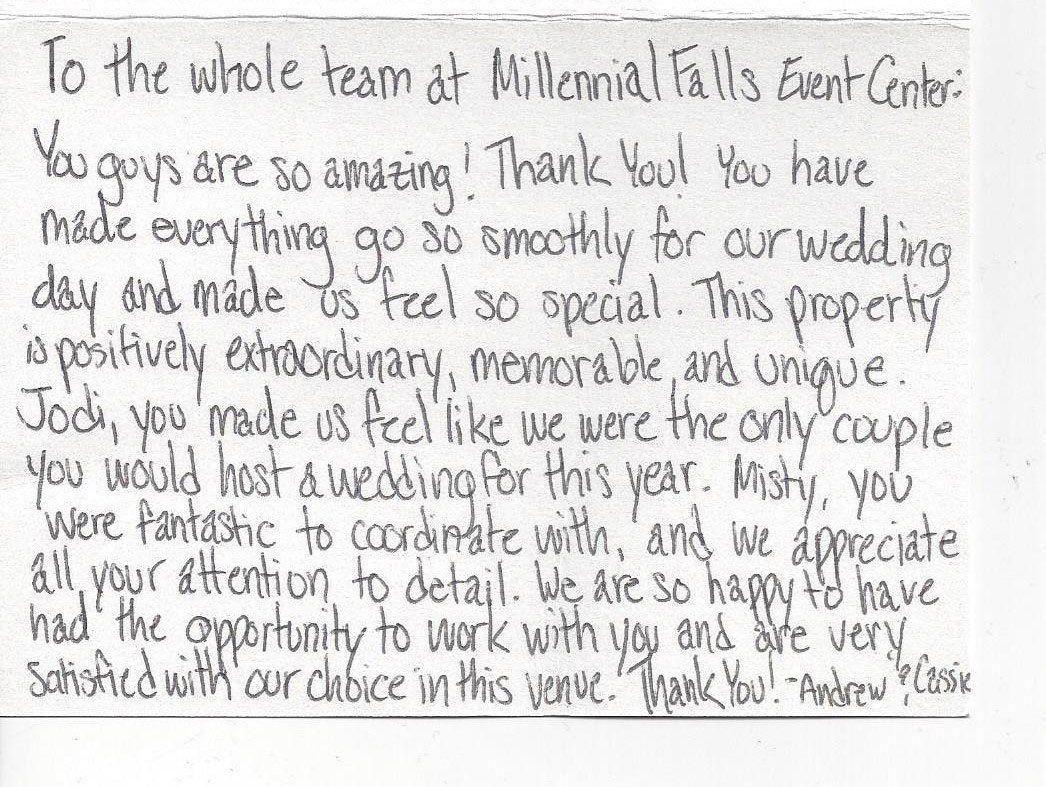 To the whole team at Millennial Falls Event Center:
You guys are so amazing! Thank You! You have
made everything go so smoothly for our wedding
day and made us feel so special. This property
is positively extraordinary, memorable, and unique.
Jodi, you made us feel like we were the only couple
you would host a wedding for this year. Misty, you
were fantastic to coordinate with, and we appreciate
all your attention to detail. We are so happy to have
had the opportunity to work with you and are very
satisfied with our choice in this venue. Thank You! -Andrew & Cassie